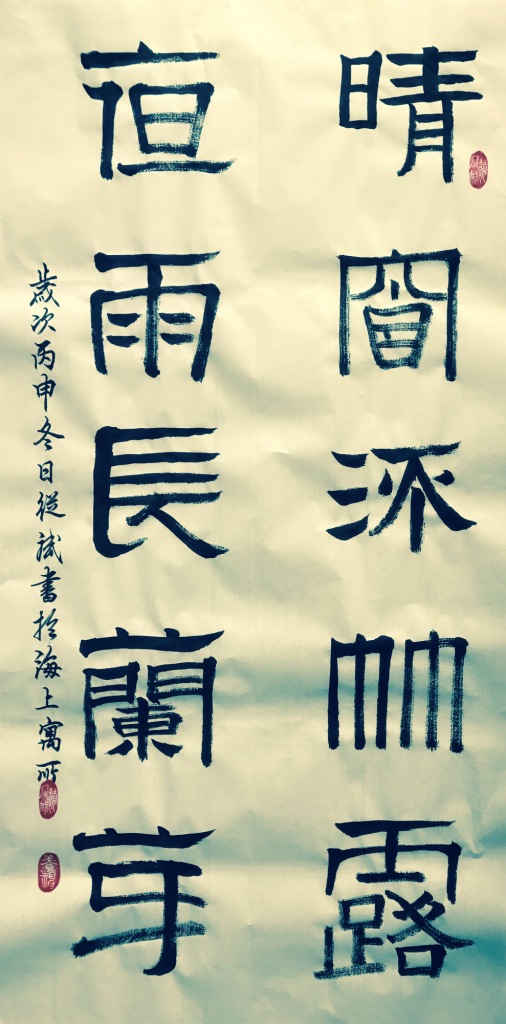 晴窗㳅竹露
亱雨長蘭芽
歲次丙申冬日從斌書於海上寓所